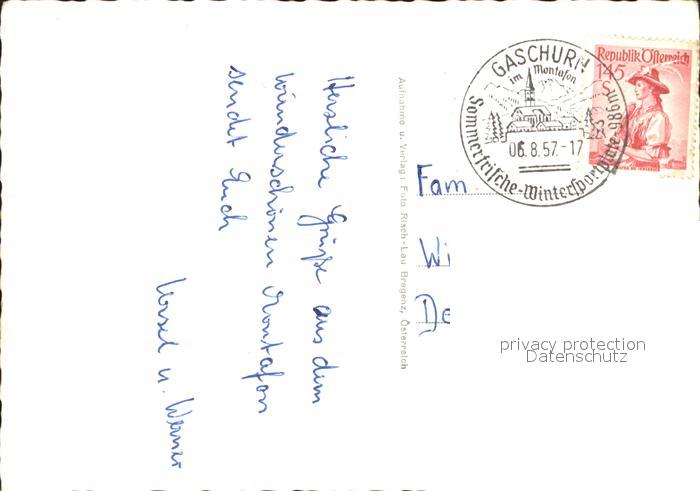 Herzliche Grüße aus dem
wunderschönen Montafon
sendet Euch
Ursel u. Werner
Aufnahme u. Verlag: Foto Risch-Lau Bregenz, Österreich
GASCHURN
im Montafon
Sommerfrische-Wintersportplatz 986 m
06.8.57.-17
Republik Österreich
1·45
S
Fam
Wi
privacy protection
Datenschutz